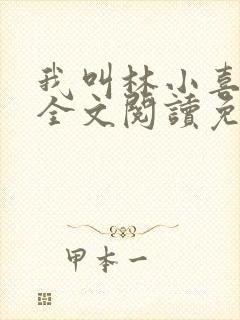 我叫林小喜
全文閱讀免
甲本一